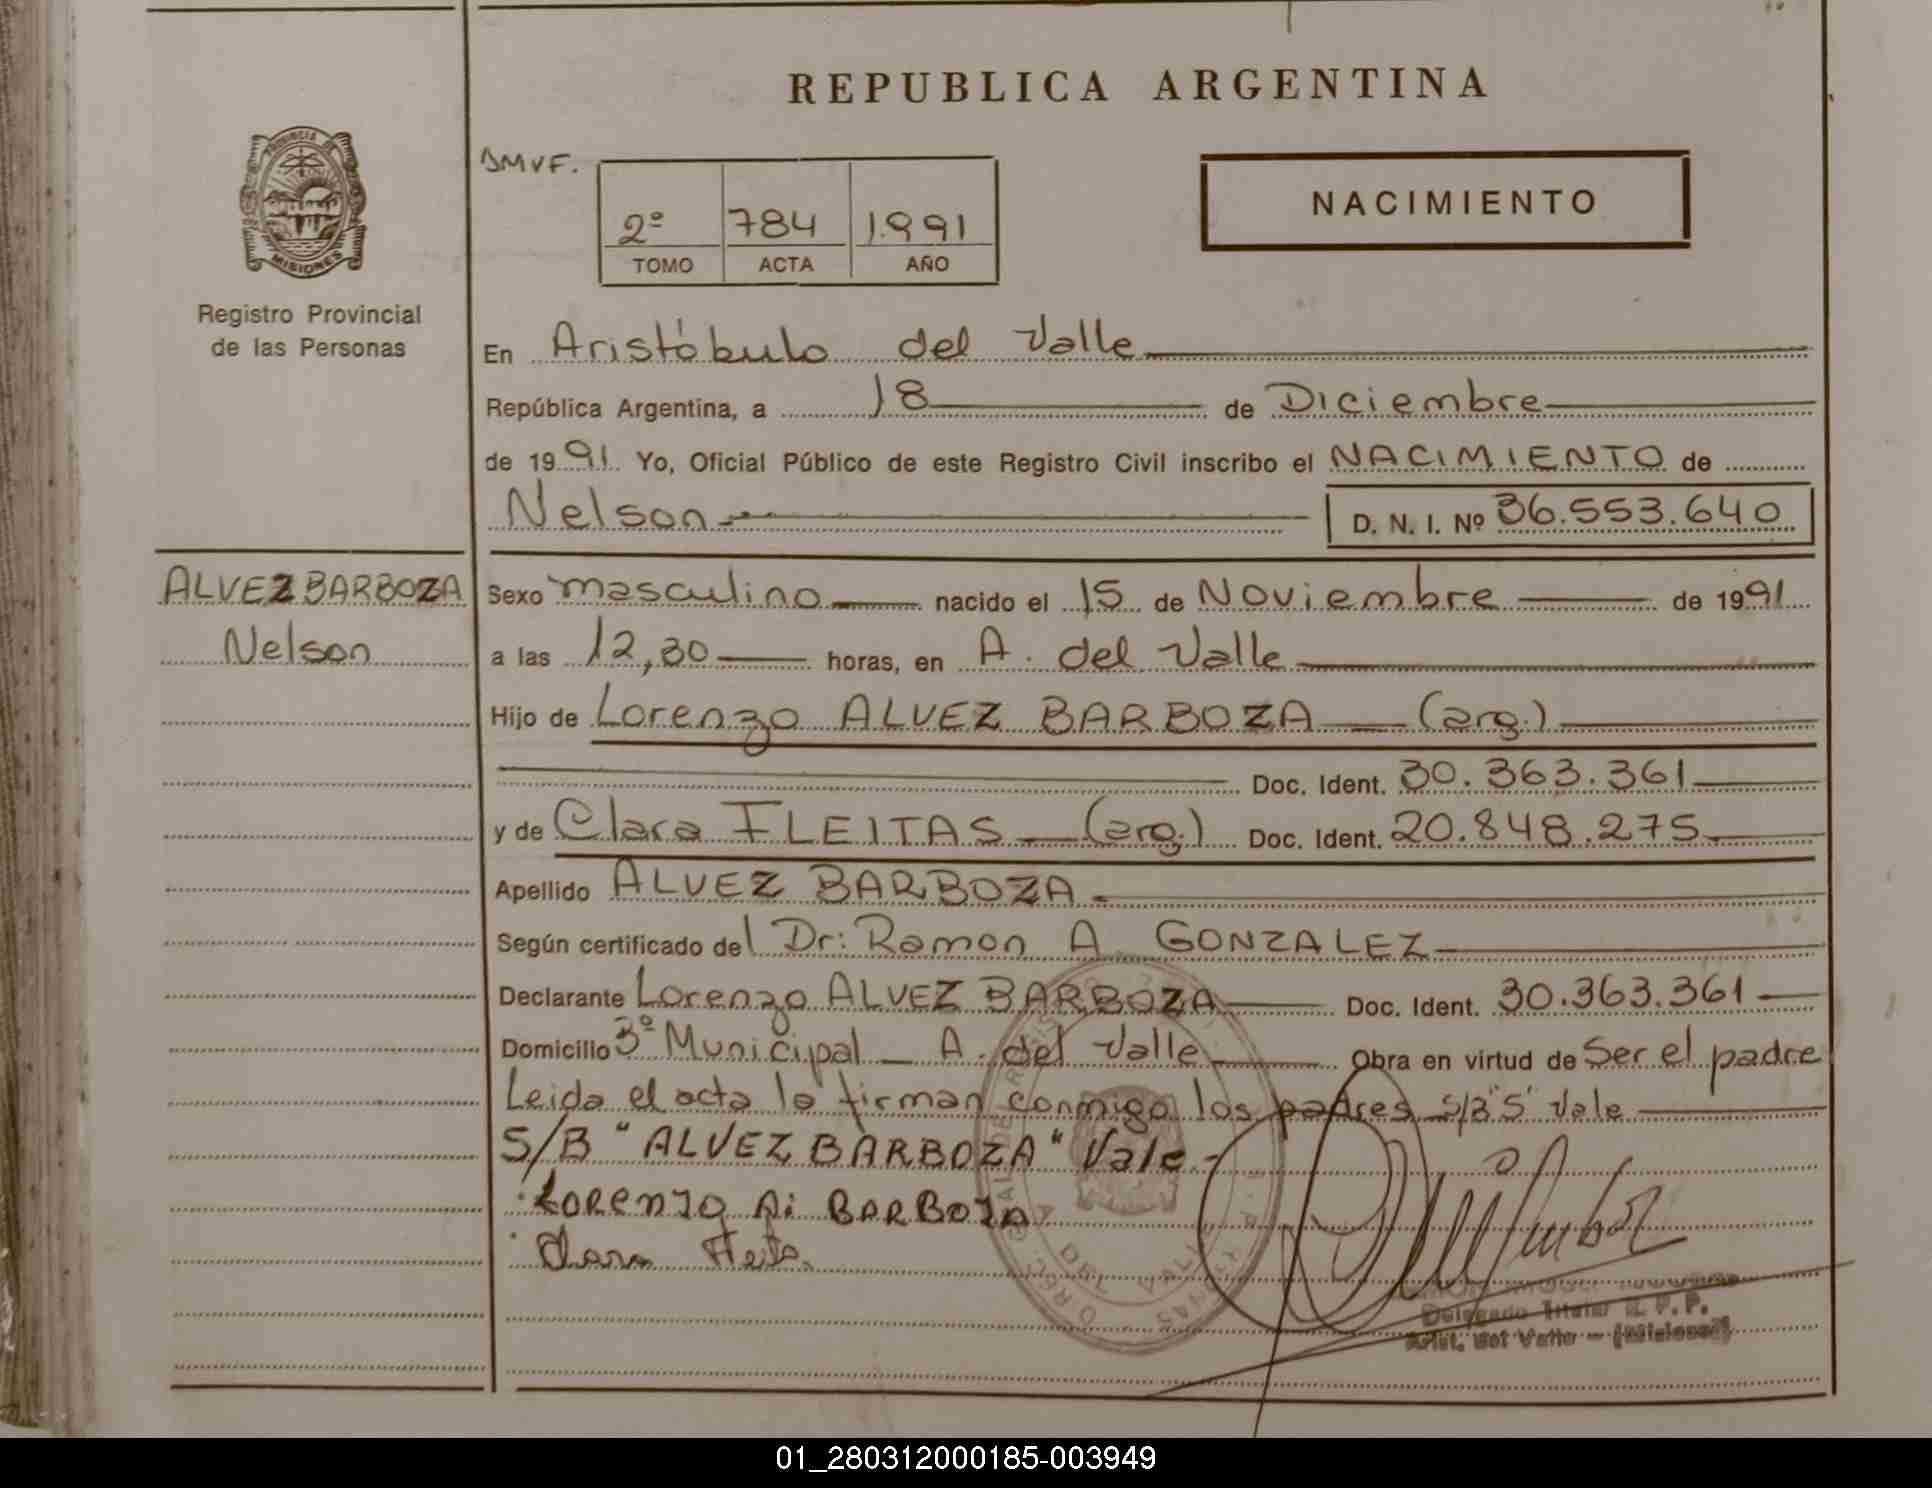 REPUBLICA ARGENTINA
PROVINCIA DE
MISIONES
Registro Provincial
de las Personas
DMVF.
2º 784 1.991
TOMO ACTA AÑO
NACIMIENTO
En Aristóbulo del Valle
República Argentina, a 18 de Diciembre
de 1991. Yo, Oficial Público de este Registro Civil inscribo el NACIMIENTO de
Nelson D. N. I. Nº 36.553.640
ALVEZ BARBOZA
Nelson
Sexo masculino nacido el 15 de Noviembre de 1991
a las 12,30 horas, en A. del Valle
Hijo de Lorenzo ALVEZ BARBOZA (arg.)
Doc. Ident. 30.363.361
y de Clara FLEITAS (arg.) Doc. Ident. 20.848.275
Apellido ALVEZ BARBOZA.
Según certificado del Dr: Ramon A. GONZALEZ
Declarante Lorenzo ALVEZ BARBOZA Doc. Ident. 30.363.361
Domicilio 3º Municipal A. del Valle Obra en virtud de Ser el padre
Leida el acta la firman conmigo los padres S/B "S" Vale
S/B "ALVEZ BARBOZA" Vale-
LORENZO Ai BARBOZA
Clara
DEL VALLE
Delegado Titular R. P. P.
Arist. del Valle - (Misiones)
01_280312000185-003949